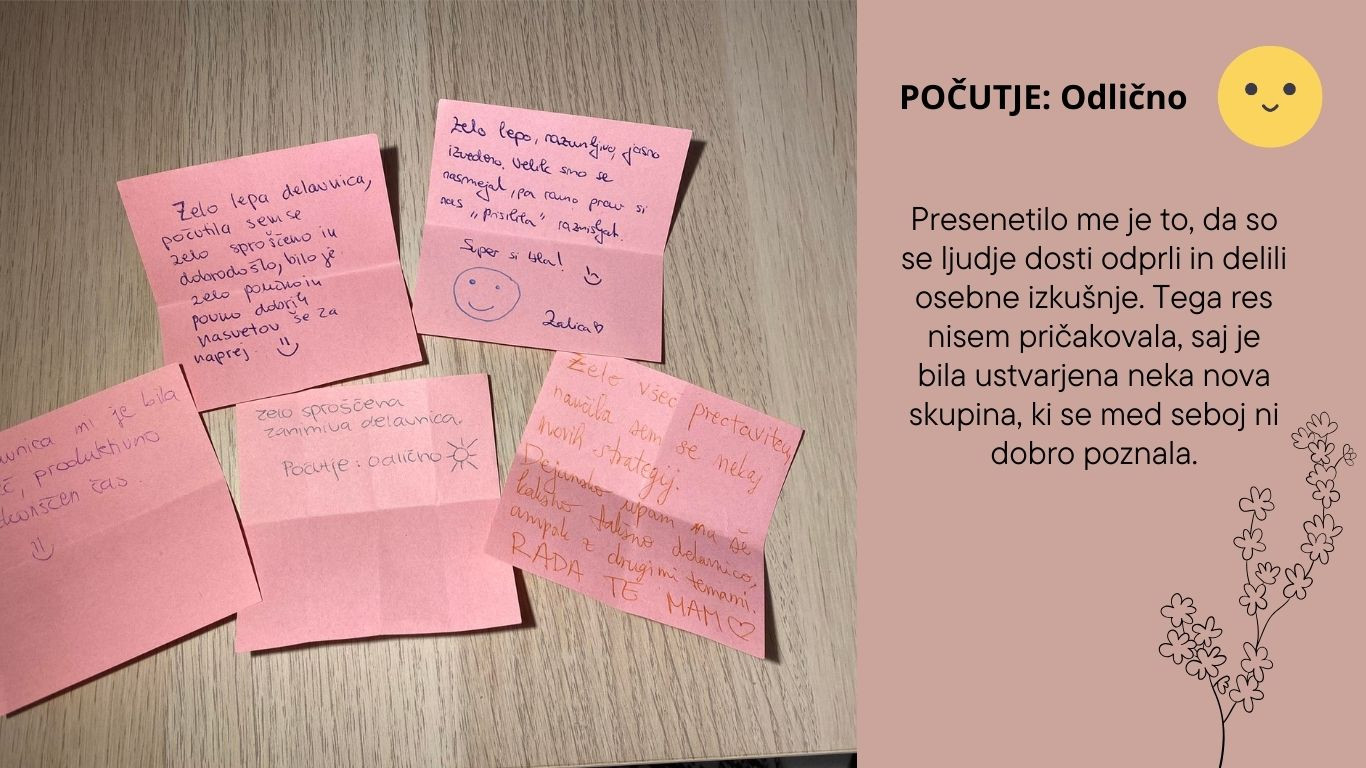 Zelo lepa delavnica,
počutila sem se
zelo sproščeno in
dobrodošlo, bilo je
zelo poučno in
polno dobrih
nasvetov še za
naprej.
Zelo lepo, razumljivo, jasno
izvedeno. Velik smo se
nasmejal, pa ravno prav si
nas „prisilila“ razmišljat.
Super si bla!
mi je bila
produktivno
čas.
zelo sproščena
zanimiva delavnica.
Počutje: odlično
Zelo všeč
naučila sem se nekaj
novih strategij.
Dejansko upam na še
kakšno takšno delavnico,
ampak z drugimi temami.
RADA TE MAM
POČUTJE: Odlično
Presenetilo me je to, da so
se ljudje dosti odprli in delili
osebne izkušnje. Tega res
nisem pričakovala, saj je
bila ustvarjena neka nova
skupina, ki se med seboj ni
dobro poznala.